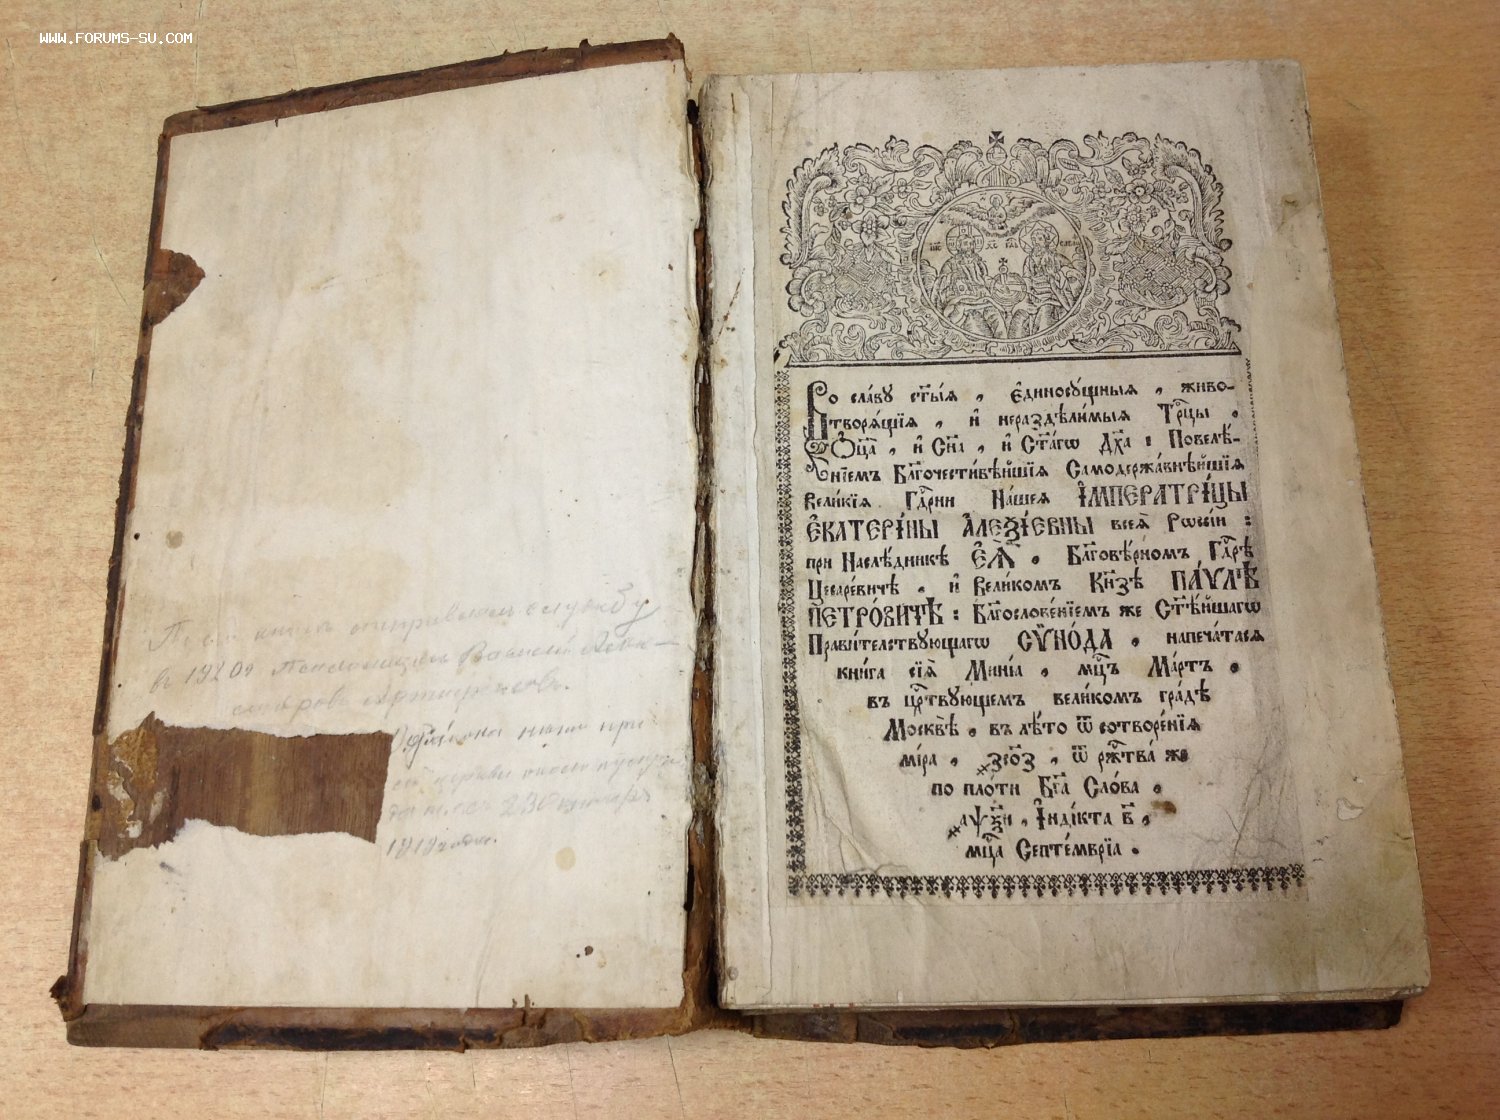 WWW.FORUMS-SU.COM
По сей книге отправлял службу
въ 1920 г. Василий
1918 года.
Во сла́ву ст҃ы́ѧ , є҆диносꙋ́щныѧ , живо-
творѧ́щїѧ , и҆ нераздѣли́мыѧ Трⷪ҇цы ,
Ѻ҆ц҃а̀ , и҆ Сн҃а , и҆ Ст҃а́гѡ Дх҃а : Повелѣ́-
нїемъ Бл҃гочести́вѣйшїѧ Самодержа́внѣйшїѧ
Вели́кїѧ Гдⷭ҇рни На́шеѧ І҆МПЕРАТРИ́ЦЫ
Є҆КАТЕРІ́НЫ А҆ЛЕѮІ́ЕВНЫ всеѧ̀ Рѡссі́и :
при Наслѣ́дникѣ Є҆Ѧ̀ , Бл҃говѣ́рномъ Гдⷭ҇рѣ
Цесаре́вичѣ , и҆ Вели́комъ Кн҃зѣ ПА́ѴЛѢ
ПЕТРО́ВИЧѢ : Бл҃гослове́нїемъ же Ст҃ѣ́йшагѡ
Прави́телствꙋющагѡ СѴНО́ДА , напеча́тасѧ
кни́га сїѧ̀ Мині́а , мцⷭ҇ъ Ма́ртъ ,
въ црⷭ҇твꙋющемъ вели́комъ гра́дѣ
Москвѣ̀ , въ лѣ́то ѿ сотворе́нїѧ
мі́ра , ҂зсо҃з , ѿ ржⷭ҇тва́ же
по пло́ти Бг҃а Сло́ва ,
҂аѱѯ҃и , І҆нді́кта в҃ ,
мцⷭ҇а Септе́мврїа .